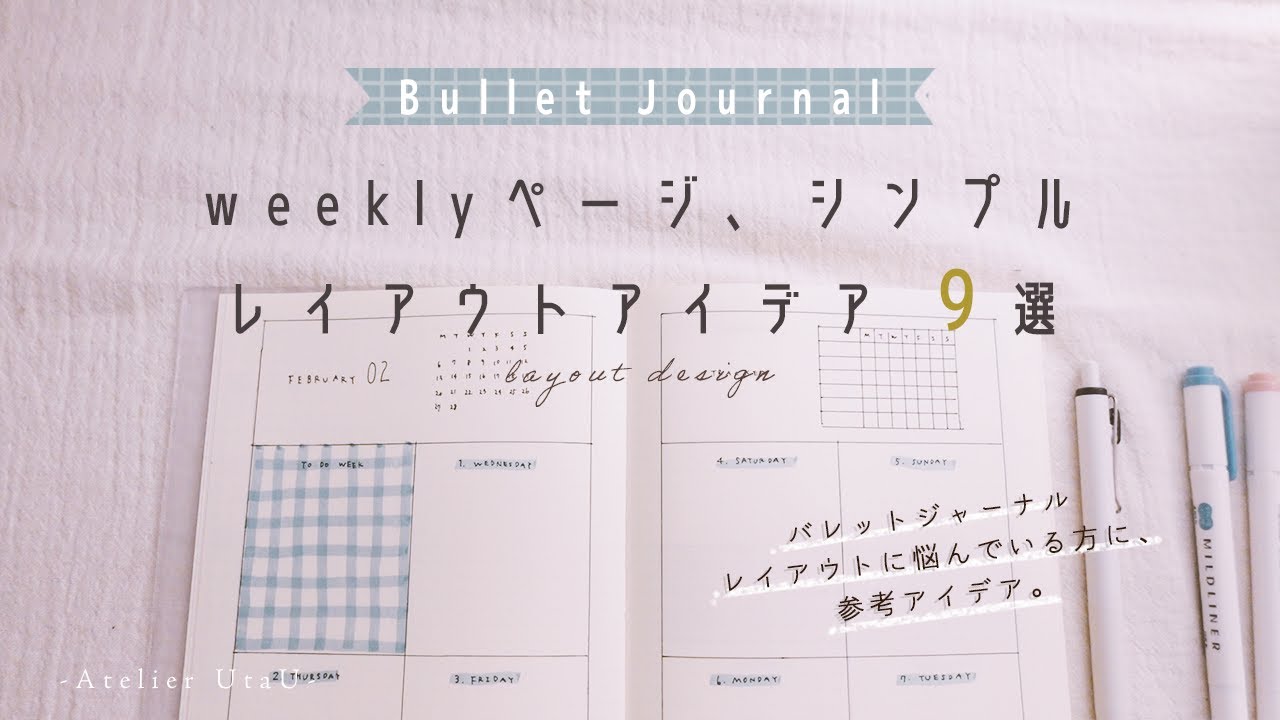 Bullet Journal
weeklyページ、シンプル
レイアウトアイデア 9選
layout design
FEBRUARY 02
M T W T F S S
1 2 3 4 5
6 7 8 9 10 11 12
13 14 15 16 17 18 19
20 21 22 23 24 25 26
27 28
M T W T F S S
TO DO WEEK
1. WEDNESDAY
4. SATURDAY
5. SUNDAY
バレットジャーナル
レイアウトに悩んでいる方に、
参考アイデア。
2. THURSDAY
3. FRIDAY
6. MONDAY
7. TUESDAY
MILDLINER
-Atelier UtaU-